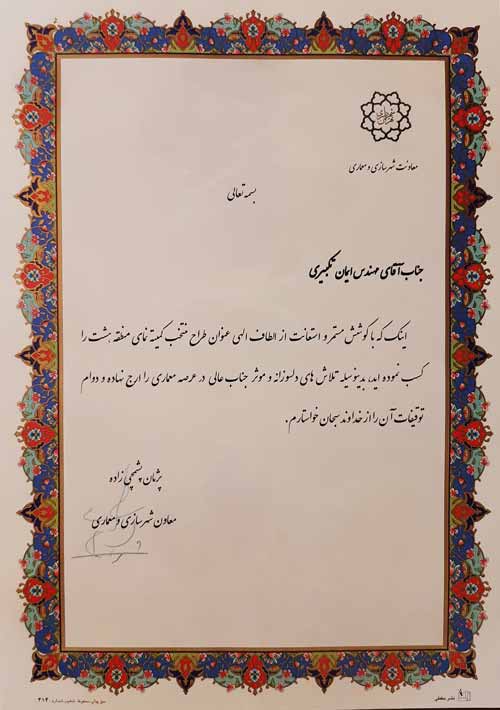 معاونت شهرسازی و معماری
بسمه تعالی
جناب آقای مهندس ایمان تکبیری
اینک که با کوشش مستمر و استعانت از الطاف الهی عنوان طراح منتخب کمیته نمای منطقه هشت را
کسب نموده اید، بدینوسیله تلاش های دلسوزانه و موثر جناب عالی در عرصه معماری را ارج نهاده و دوام
توفیقات آن را از خداوند سبحان خواستارم.
پژمان پشمچی زاده
معاون شهرسازی و معماری